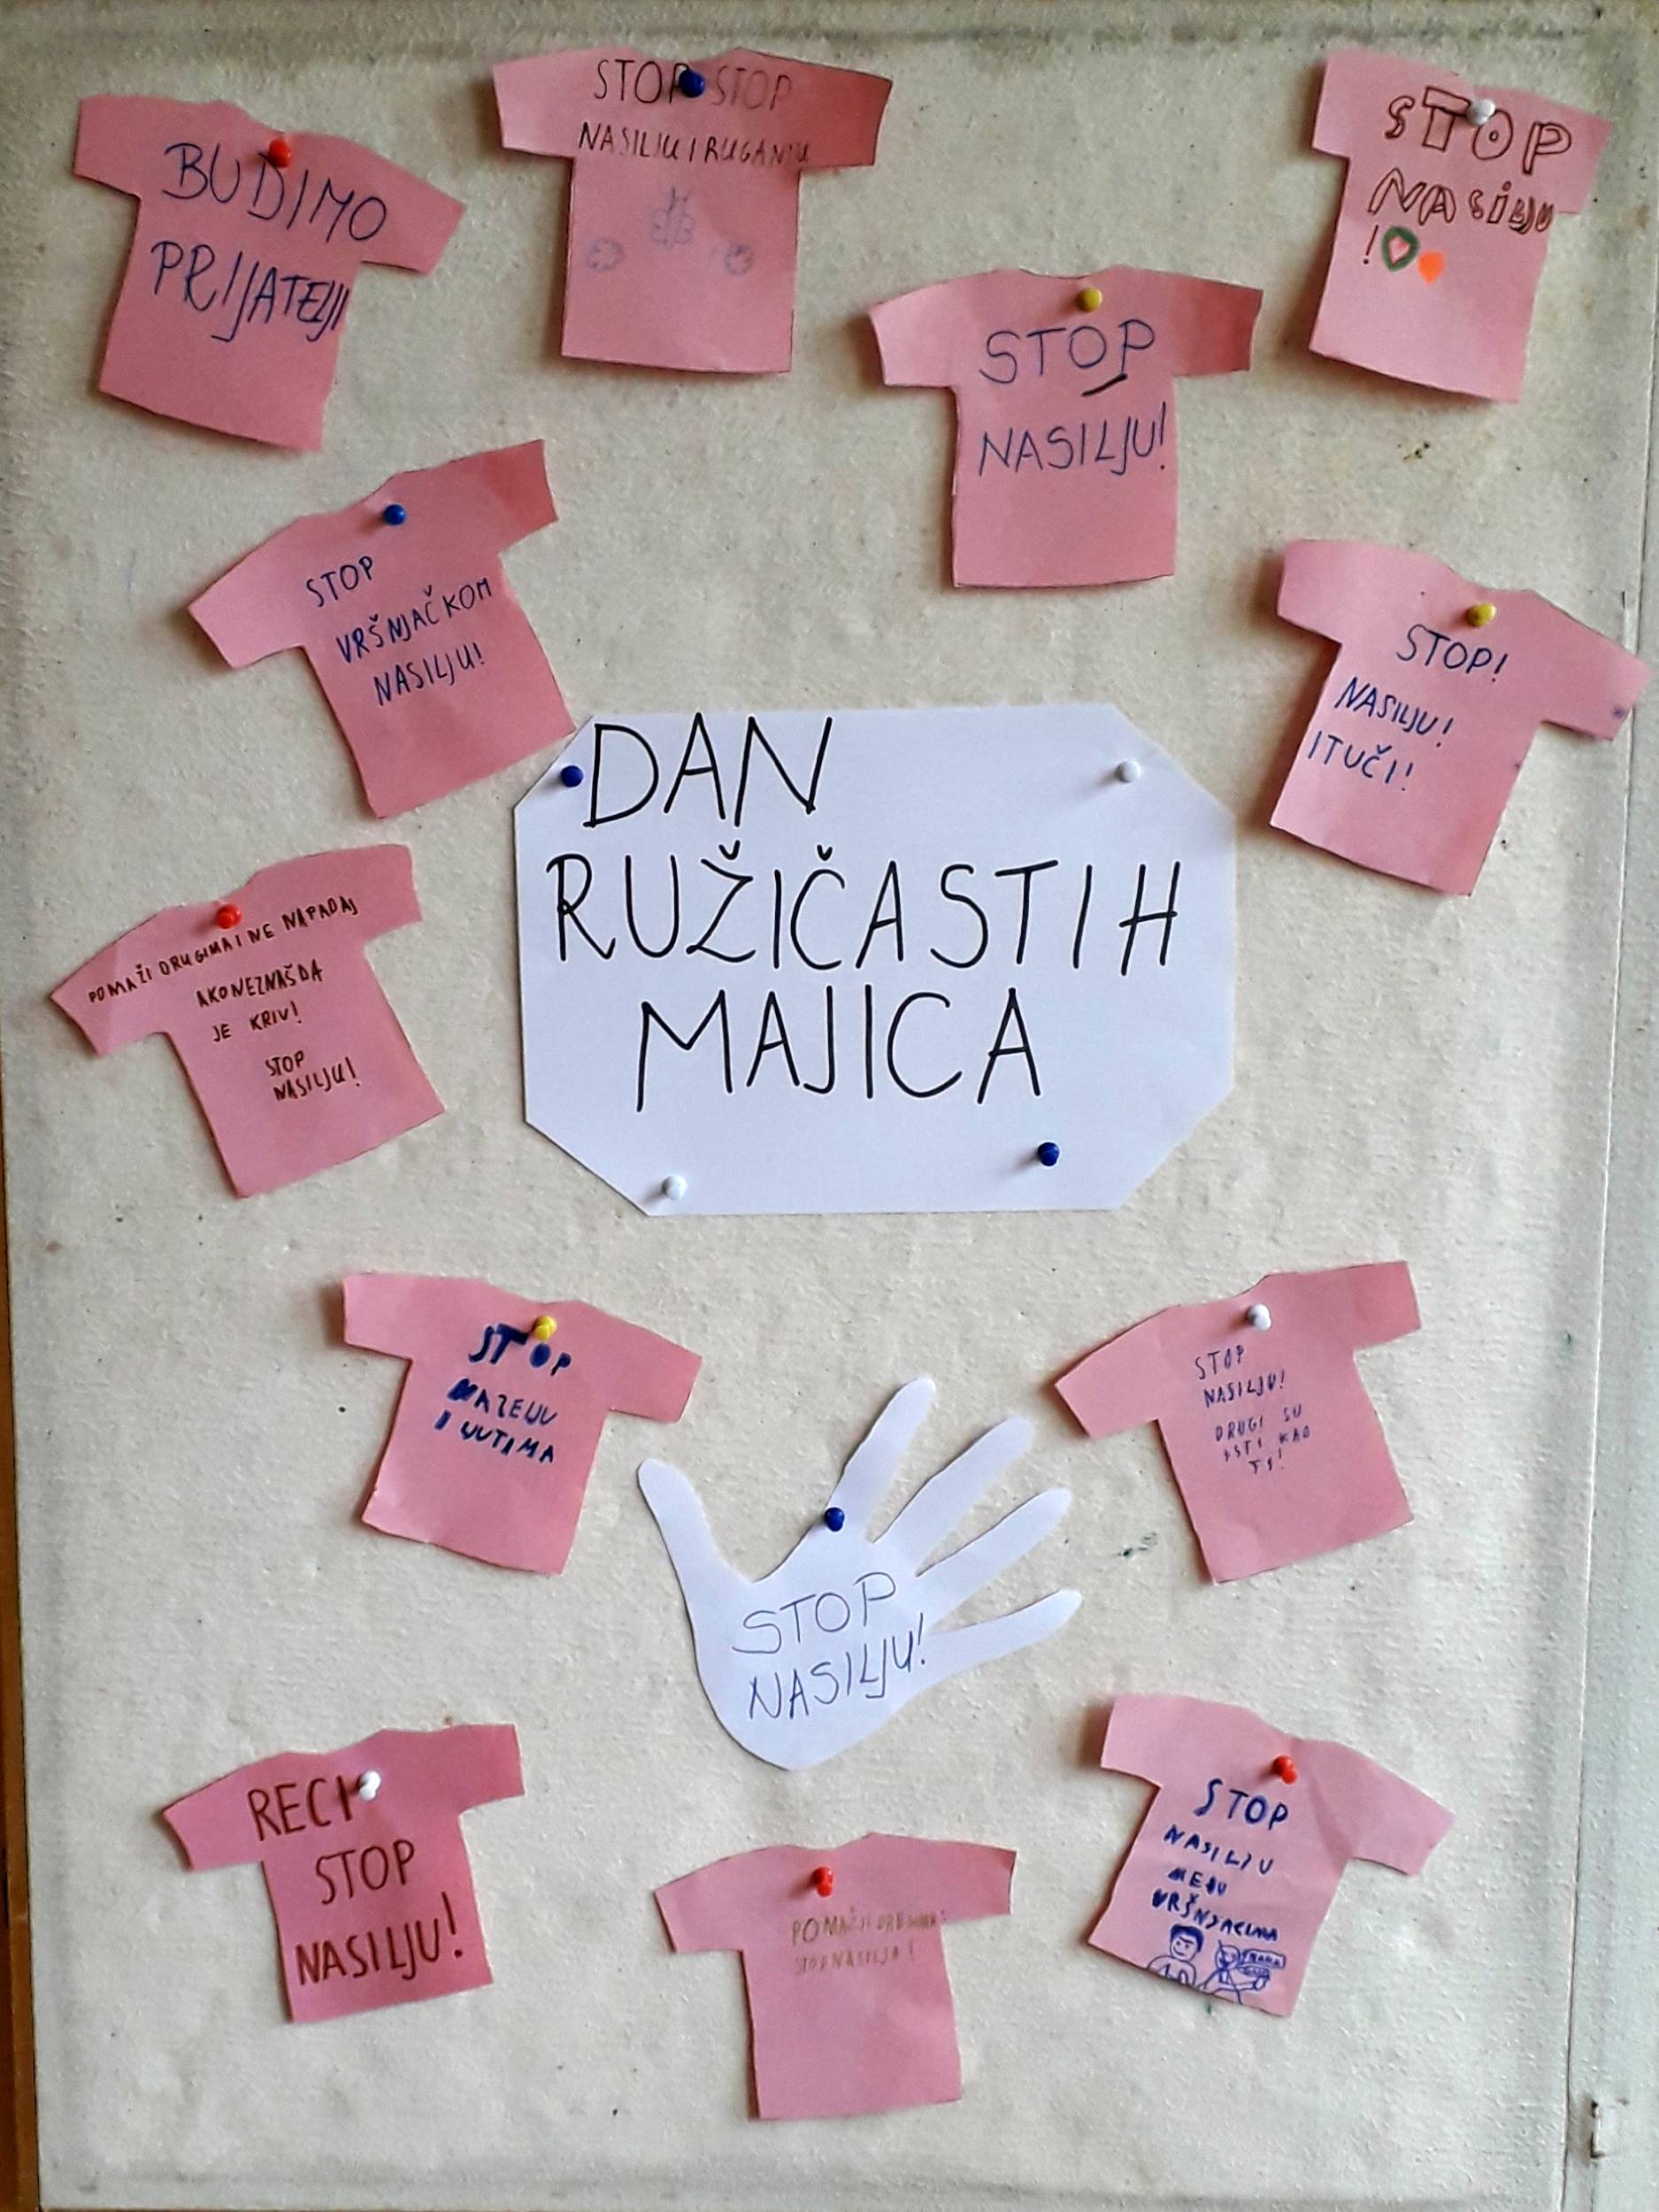 BUDIMO
PRIJATELJI
STOP STOP
NASILJU I RUGANJU
STOP
NASILJU
!
STOP
NASILJU!
STOP
VRŠNJAČKOM
NASILJU!
STOP!
NASILJU!
I TUČI!
DAN
RUŽIČASTIH
MAJICA
POMAŽI DRUGIMA I NE NAPADAJ
AKO NEZNAŠ DA
JE KRIV!
STOP
NASILJU!
STOP
I LJUTIMA
STOP
NASILJU!
DRUGI SU
ISTI KAO
TI!
STOP
NASILJU!
RECI
STOP
NASILJU!
POMAŽI DRUGIMA
STOP NASILJA!
STOP
NASILJU
MEĐU
VRŠNJACIMA